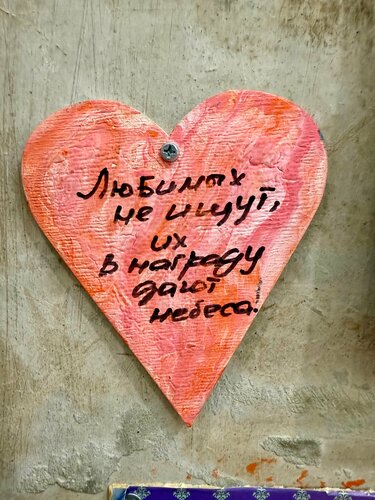 Любимых
не ищут,
их
в награду
дают
небеса.